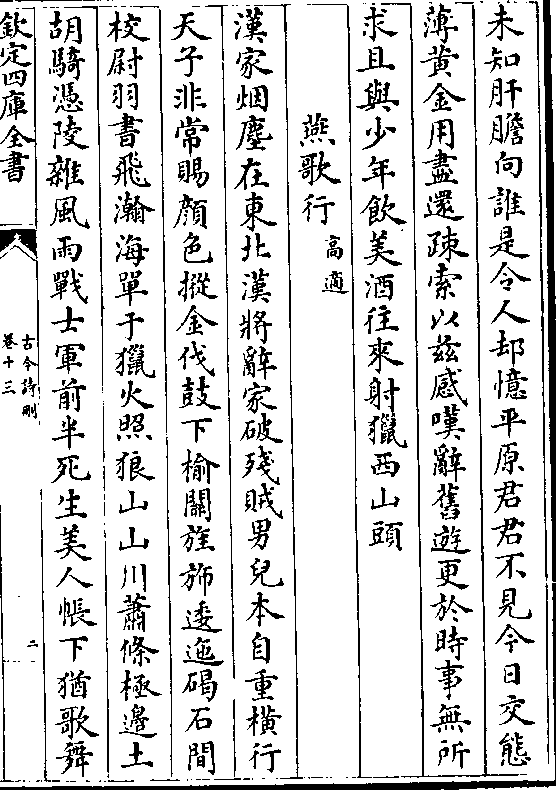 未知肝膽向誰是令人却憶平原君君不見今日交態
薄黃金用盡還疎索以兹感嘆辭舊遊更於時事無所
求且與少年飲美酒往來射獵西山頭
燕歌行
高適
漢家烟塵在東北漢將辭家破殘賊男兒本自重橫行
天子非常賜顏色摐金伐鼓下榆關旌斾逶迤碣石間
校尉羽書飛瀚海單于獵火照狼山山川蕭條極邊土
胡騎憑陵雜風雨戰士軍前半死生美人帳下猶歌舞
欽定四庫全書
古今詩刪
卷十三
二